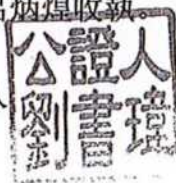 炳煌收執。
公證人
劉書瑋